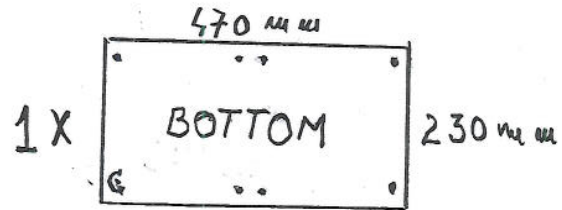 470 mm
1 X BOTTOM 230 mm